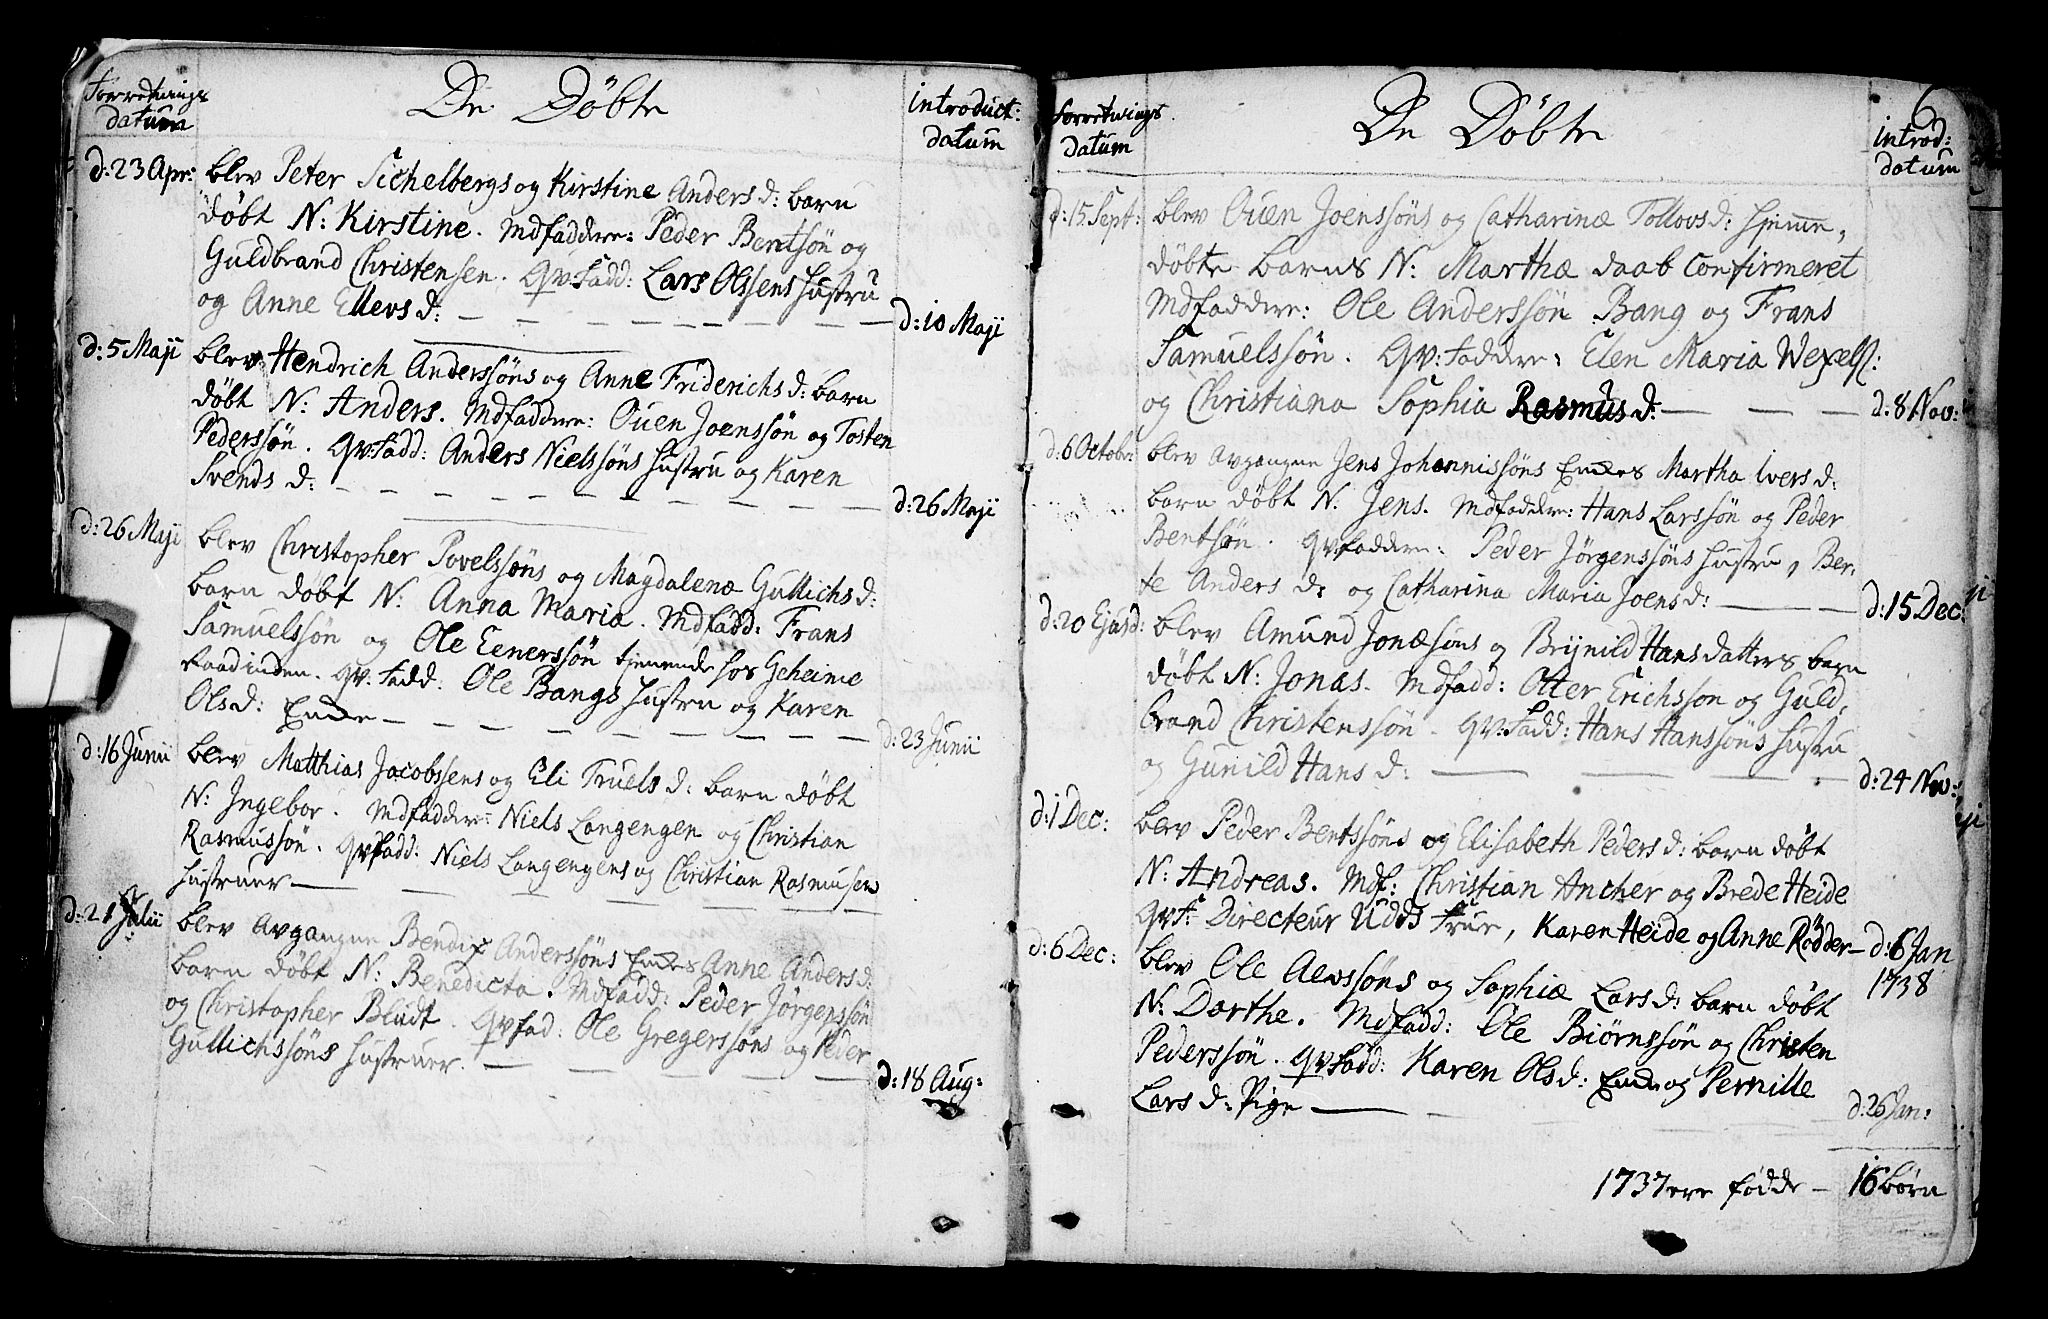 Forretnings
datum
De Döbte
introduct:
datum
d: 23 Apr:
blev Peter Sichelbergs og Kirstine Anders d: barn
döbt N: Kirstine. Mdfaddere: Peder Bentsön og
Guldbrand Christensen. Qv: Fadd: Lars Olssens Hustru
og Anne Ellevs d:
d: 10 Maji
d: 5 Maji
blev Hendrich Anderssöns og Anne Friderichs d: barn
döbt N: Anders. Mdfaddere: Ouen Joenssön og Tosten
Pederssön. Qv: Fadd: Anders Nielssöns Hustru og Karen
Svends d:
d: 26 Maji
d: 26 Maji
blev Christopher Povelssöns og Magdalenæ Gullichs d:
barn döbt N: Anna Maria. Mdfadd: Frans
Samuelssön og Ole Eenerssön tjenende hos Geheime
Raadinden. Qv: Fadd: Ole Bangs Hustru og Karen
Ols d: Enke
d: 23 Junii
d: 16 Junii
blev Matthias Jacobssens og Eli Truels d: barn döbt
N: Ingebor. Mdfaddere: Niels Langengen og Christian
Rasmussön. Qvfadd: Niels Langengens og Christian Rasmusen
Hustruer
d: 21 Julii
blev avgangne Bendix Anderssöns Enkes Anne Anders d:
barn döbt N: Benedicta. Mdfadd: Peder Jörgenssön
og Christopher Bludt. Qvfad: Ole Gregerssöns og Peder
Gullichssöns Hustruer.
d: 18 Aug:
6
Forretnings
datum
De Döbte
introd:
datum
d: 15 Sept:
blev Ouen Joenssöns og Catharinæ Tollovs d: hjemme,
döbte barns N: Marthæ daab Confirmeret
Mdfaddere: Ole Anderssön Bang og Frans
Samuelssön. Qv: Faddere: Elen Maria Wexels:
og Christiana Sophia Rasmus d:
d: 8 Nov:
d: 6 Octobr:
blev avgangne Jens Johannissöns Enkes Martha Ivers d:
barn döbt N: Jens. Mdfaddere: Hans Larssön og Peder
Bentsön. Qvfaddere: Peder Jörgenssöns Hustru, Ber,
te Anders d: og Catharina Maria Joens d:
d: 15 Dec:
d: 20 Ejusd:
blev Amund Jonæsöns og Brynild Hansdatters barn
döbt N: Jonas. Mdfadd: Otter Erichsson og Guld,
brand Christenssön. Qv: Fadd: Hans Hanssöns Hustru
og Gunild Hans d:
d: 24 Nov:
d: 1 Dec:
blev Peder Bentssöns og Elisabeth Peders d: barn döbt
N: Andreas. Mdf: Christian Ancher og Brede Heide
Qv: F: Directeur Udds Frue, Karen Heide og Anne Rödder
d: 6 Jan
1738
d: 6 Dec:
blev Ole Alevssöns og Sophiæ Lars d: barn döbt
N: Dorthe. Mdfadd: Ole Biörnssön og Christen
Pederssön. Qvfadd: Karen Ols d: Enke og Pernille
Lars d: Pige
d: 26 Jan:
1737 ere födde - 16 börn